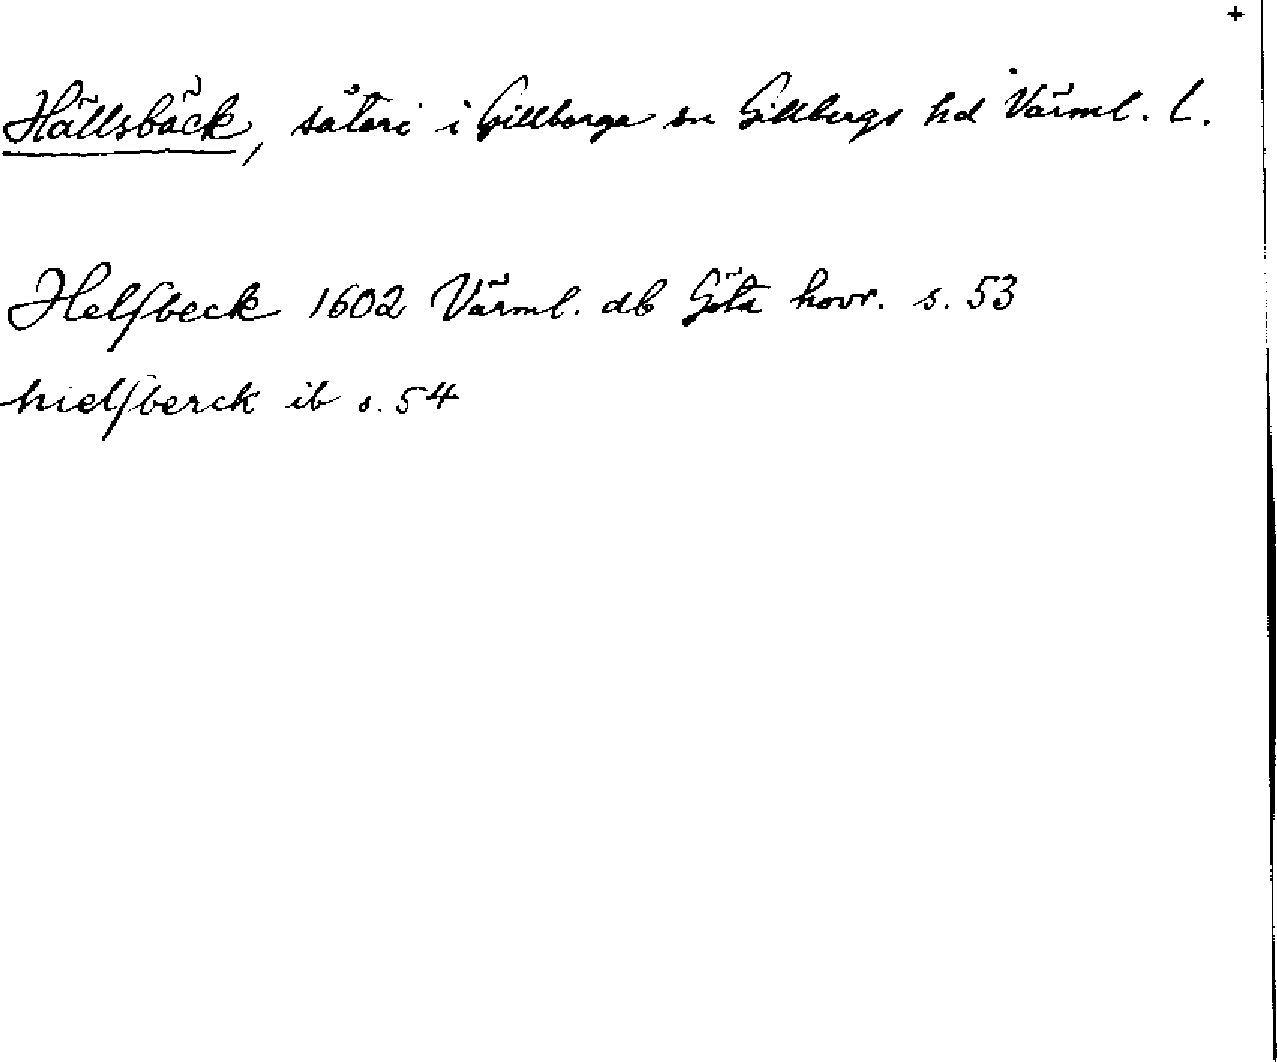 +
Hällsbäck, säteri i Gillberga sn Gillbergs hd Värml. l.
Helſbeck 1602 Värml. db Göta hovr. s. 53
hielſberck ib s. 54